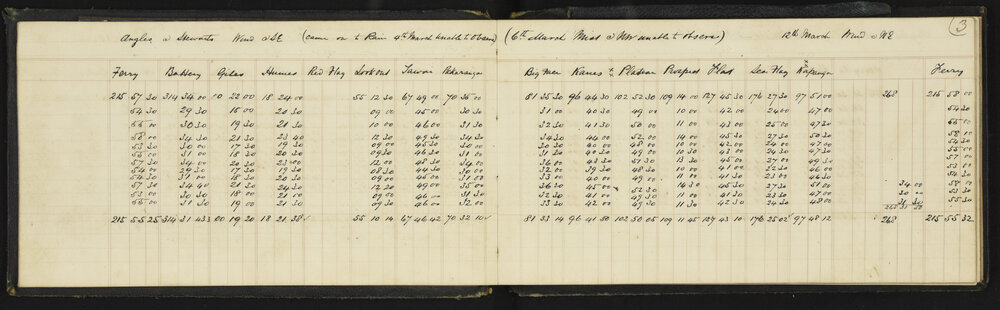 3
Angles @ Stewarts Wind @ SE (came on to Rain 4th March unable to Observe) (6th March Mist @ NW unable to observe) 12th March Wind @ NE
Ferry Battery Giles Humes Red Flag Lookout Tower Pakuranga Kanes Plateau Prospect Flat Sea Flag Ferry
215 57 30 314 34 00 10 22 00 18 24 00 55 12 30 67 49 00 70 35 00 81 35 30 96 44 30 102 52 30 109 14 00 127 45 30 176 27 30 97 51 00 268 215 58 00
54 30 29 30 18 00 20 30 09 00 45 00 30 30 31 00 40 30 49 00 10 00 42 00 24 00 47 00 54 30
55 00 30 30 19 30 21 30 10 00 46 00 31 30 32 30 41 30 50 00 11 00 43 00 25 00 47 30 55 00
58 00 34 30 21 30 23 40 12 30 49 30 34 30 34 30 44 00 52 00 14 00 45 30 27 30 50 30 58 00
53 30 30 00 17 30 19 30 09 00 45 30 30 00 30 30 40 00 48 00 10 00 42 00 24 00 47 00
55 00 31 00 18 30 20 30 09 30 46 30 31 00 31 30 40 30 49 30 10 00 43 00 24 30 47 30
57 30 34 00 20 30 23 00 12 00 48 30 34 00 36 00 43 30 51 30 13 30 45 00 27 00 49 30
54 00 29 30 17 30 19 30 08 30 44 30 30 00 32 00 39 30 48 30 10 00 41 00 22 30 46 30
54 30 31 00 18 00 20 30 09 00 45 00 31 00 33 00 40 00 49 00 11 00 41 30 23 00 46 30
57 30 34 40 20 30 24 30 12 20 49 00 35 00 36 30 45 00 52 30 14 30 45 30 27 30 51 00 34 00 58 00
53 00 30 00 18 00 21 00 09 00 46 00 31 30 32 30 41 00 49 30 11 00 41 30 23 30 47 00 30 00 53 30
55 00 31 30 19 00 21 30 09 30 46 00 32 00 33 30 42 00 49 30 11 30 42 30 24 30 48 00 31 30 55 30
215 55 25 314 31 43 10 19 20 18 21 38 55 10 14 67 46 42 70 32 10 81 33 14 96 41 50 102 50 05 109 11 45 127 43 10 176 25 02 97 48 12 268 215 55 32